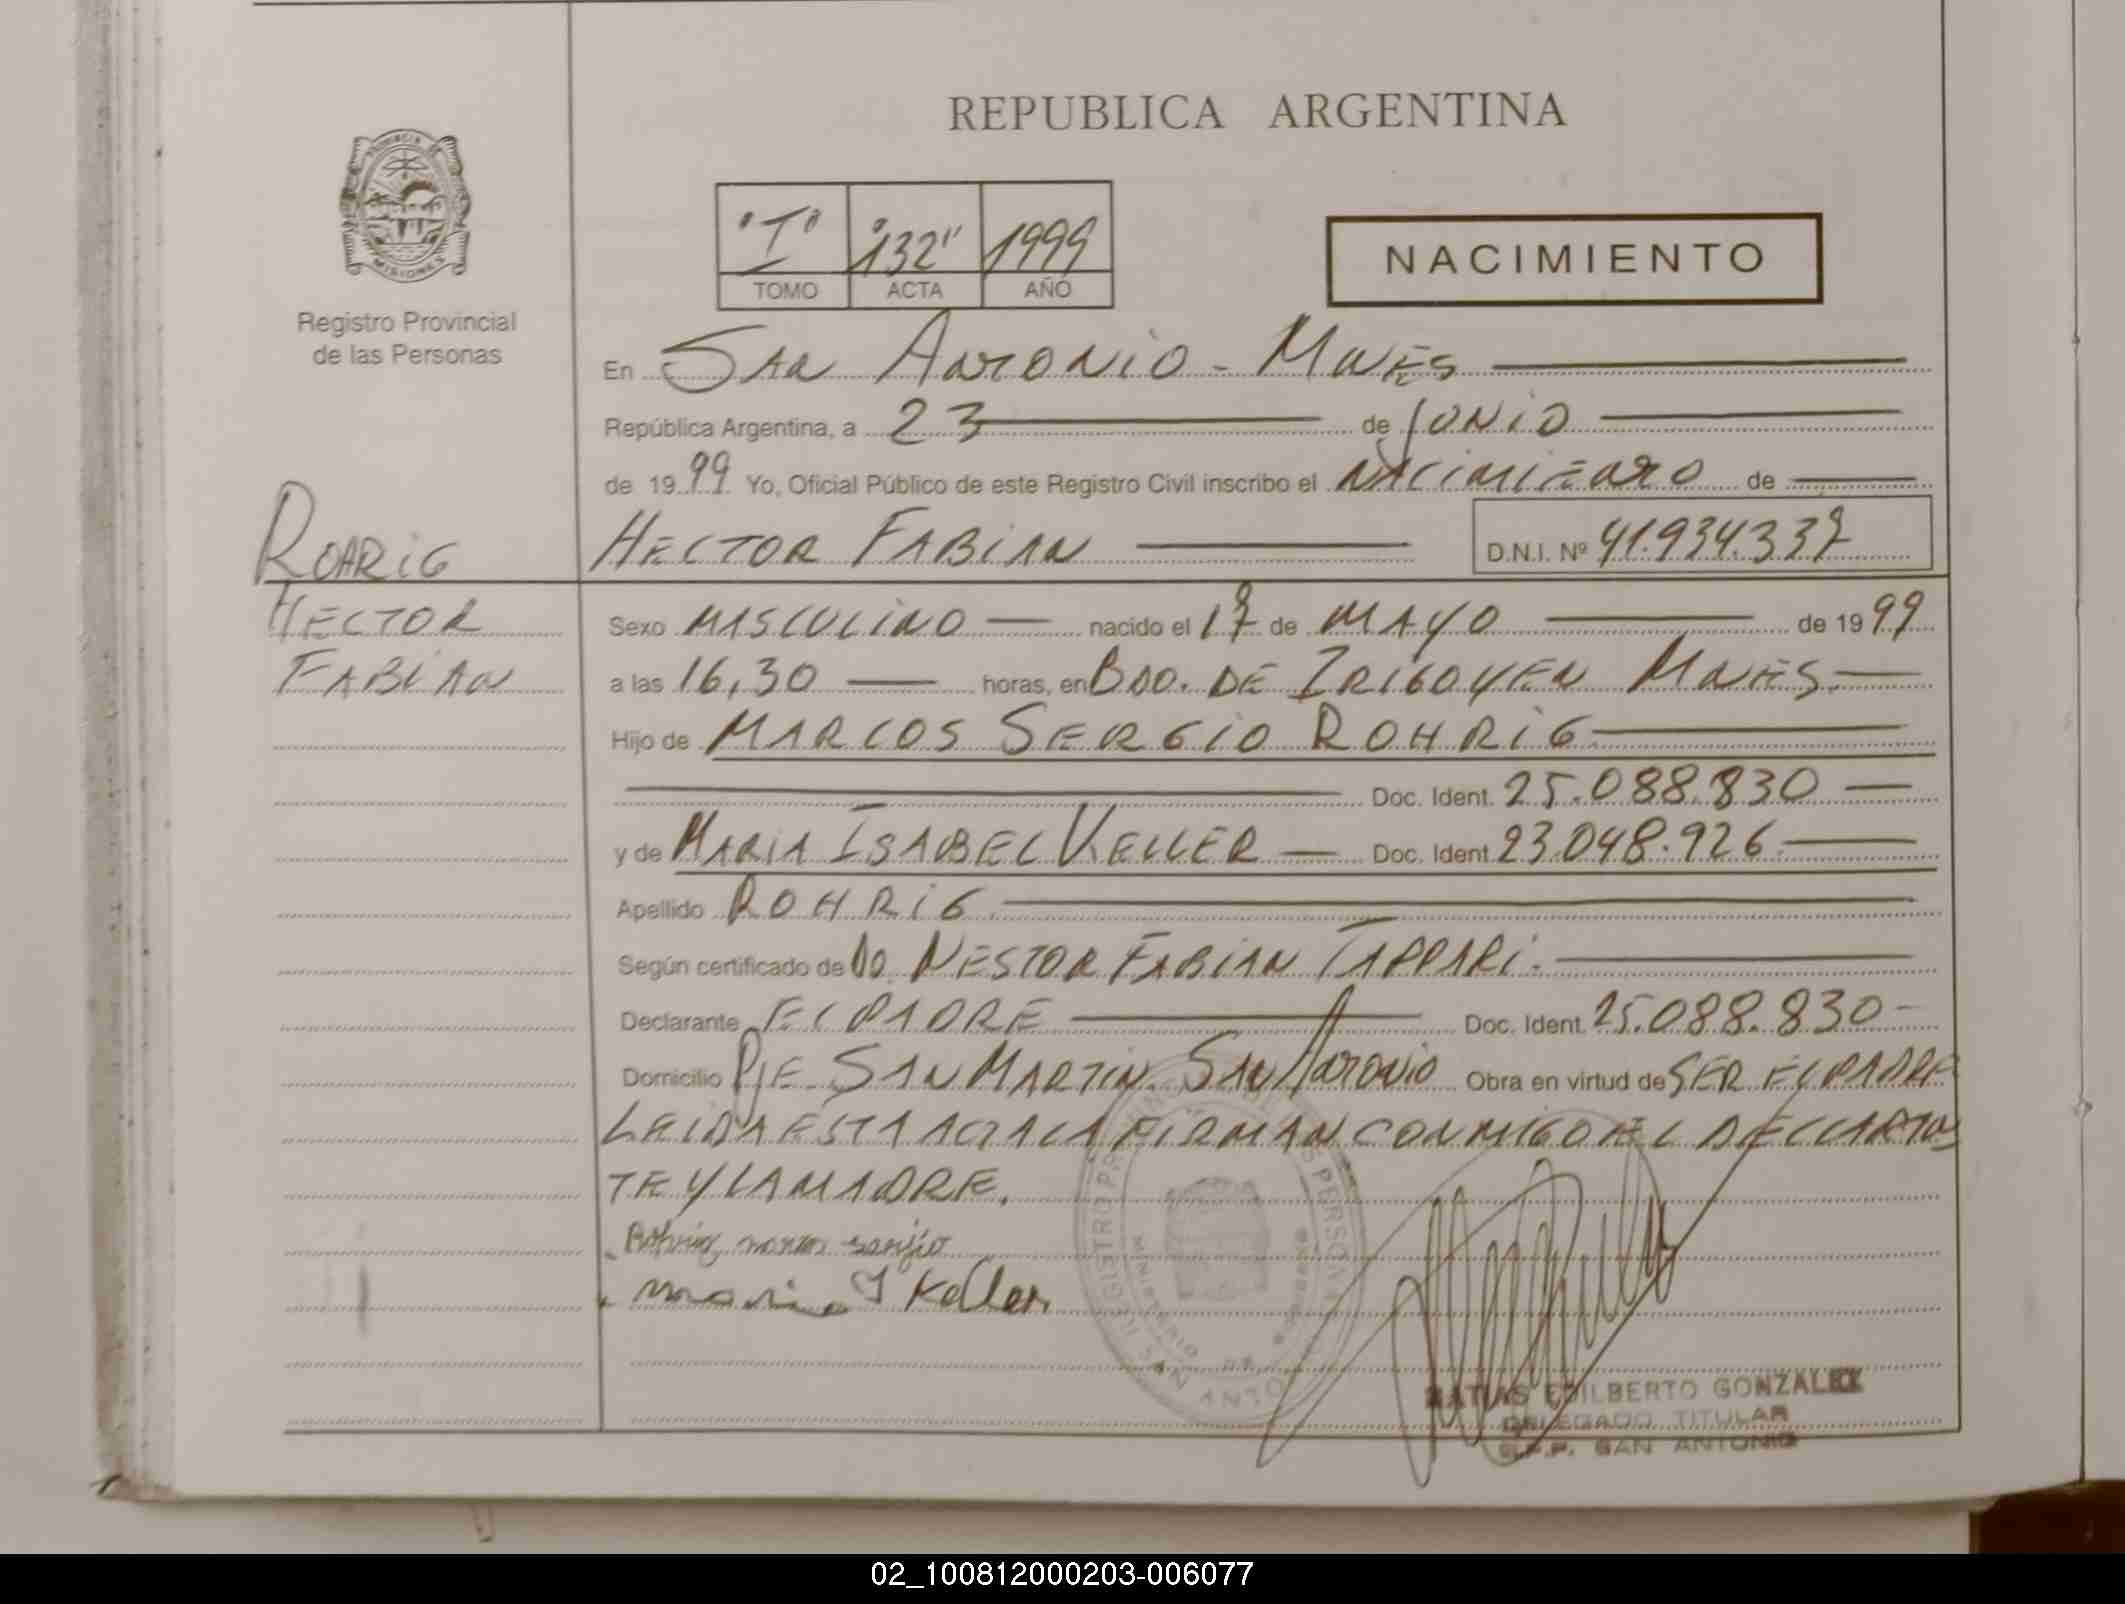 REPUBLICA ARGENTINA
PROVINCIA DE
MISIONES
Registro Provincial
de las Personas
"I" "132" 1999
TOMO ACTA AÑO
NACIMIENTO
En SAN ANTONIO - MNES
República Argentina, a 23 de JUNIO
de 1999 Yo, Oficial Público de este Registro Civil inscribo el NACIMIENTO de
ROHRIG
HECTOR FABIAN
D.N.I. Nº 41.934.337
HECTOR
FABIAN
Sexo MASCULINO nacido el 17 de MAYO de 1999
a las 16,30 horas, en BDO. DE IRIGOYEN MNES.
Hijo de MARCOS SERGIO ROHRIG
Doc. Ident. 25.088.830
y de MARIA ISABEL KELLER Doc. Ident 23.048.926
Apellido ROHRIG
Según certificado de Do. NESTOR FABIAN TAPPARI.
Declarante EL PADRE Doc. Ident. 25.088.830
Domicilio PJE. SAN MARTIN. SAN ANTONIO Obra en virtud de SER EL PADRE
LEIDA ESTA ACTA LA FIRMAN CONMIGO EL DECLARAN
TE Y LA MADRE.
Rohrig marcos sergio
maria I Keller
REGISTRO PROVINCIAL DE LAS PERSONAS
MINISTERIO DE GOBIERNO
SAN ANTONIO
MATIAS EDILBERTO GONZALEZ
DELEGADO TITULAR
R.P.P. SAN ANTONIO
02_100812000203-006077